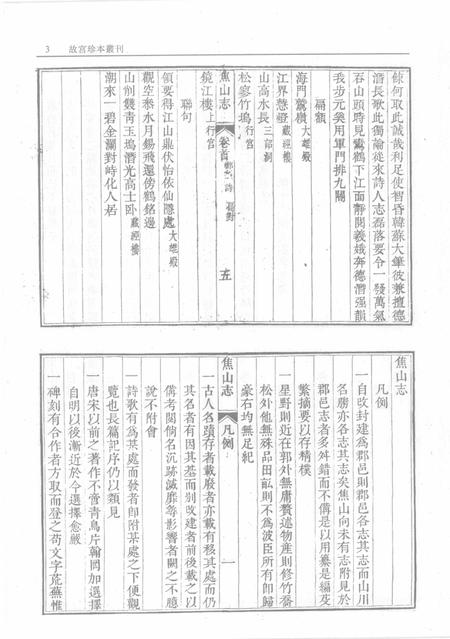 3 故宮珍本叢刊
餗何取此誠哉利足使智昏韓蘇大筆彼兼擅德
潛長歌此獨論從來詩人志磊落要令一發萬氣
石山頭時見鸞鶴下江面靜閱羲娥奔德潛强韻
我步元矣用軍門排九閽
匾額
海門鷲嶺大雄殿
江界慧燈藏經樓
山高水長三詔洞
松寥竹塢行宮
焦山志 卷首 五
鏡江樓上行宮
聯句
領要得江山鼎伏怡依仙隱處大雄殿
觀空叅水月錫飛還傍鶴銘邊
山剏雙青玉塢潛光高士卧藏經樓
潮來一碧金瀾對峙化人居
焦山志
凡例
一自改封建為郡邑則郡邑各志其志而山川
名勝亦各志其志矣焦山向未有志附見於
郡邑志者多舛錯而不備是以用纂是編芟
繁摘要以存精樸
一星野則近在郭外無庸贅述物產則修竹喬
松外他無殊品田畝則不為波臣所有卽歸
豪右均無足紀
焦山志 凡例 一
一古人名蹟存者載廢者亦載有移其處而仍
其名者有因其基而剏改建者前後載之以
備考閱倘名沉跡滅靡等影響者闕之不臆
說不附會
一詩歌有為某處而發者卽附某處之下便觀
覽也長篇記序仍以類見
一唐宋以前之著作不啻青鳥片翰罔加選擇
自明以後漸近於今選擇愈嚴
一碑刻有合作者方取而登之苟文字荒蕪惟